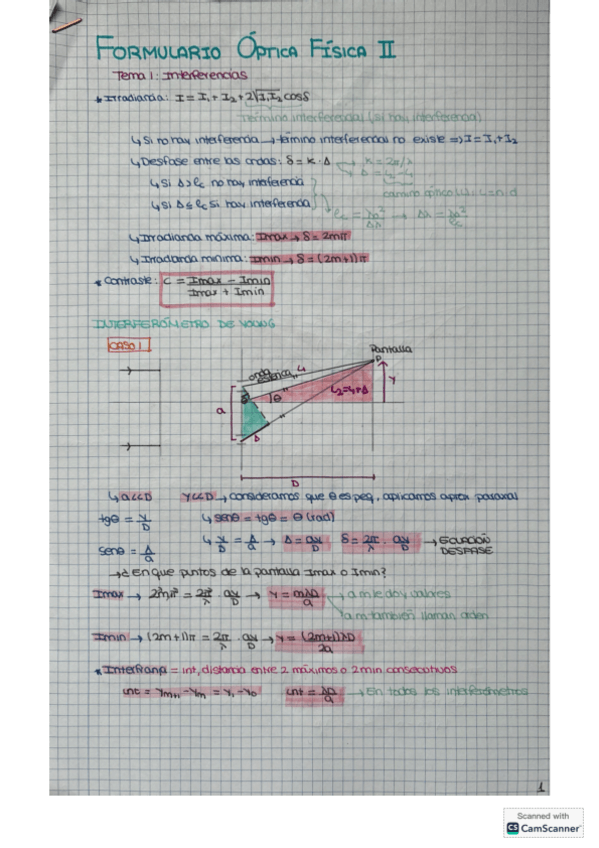 FORMULARIO ÓPTICA FÍSICA II
Tema 1: Interferencias
* Irradiancia: I = I₁ + I₂ + 2√I₁I₂ cosδ
Término interferencial (si hay interferencia)
↳ Si no hay interferencia → término interferencial no existe ⇒ I = I₁ + I₂
↳ Desfase entre las ondas: δ = k · Δ → k = 2π/λ
→ Δ = L₂ - L₁
↳ Si Δ > lc no hay interferencia
camino óptico
↳ Si Δ ≤ lc si hay interferencia
lc = λo²/Δλ → Δλ = λo²/lc
↳ Irradiancia máxima: Imax → δ = 2mπ
↳ Irradiancia mínima: Imin → δ = (2m+1)π
* Contraste: C = Imax - Imin / Imax + Imin
INTERFERÓMETRO DE YOUNG
CASO 1
Pantalla
P
onda esférica L₁
L₂ = L₁ + Δ
θ
y
a
Δ
D
↳ a<<D y<<D → consideramos que θ es peq, aplicamos aprox paraxial
tgθ = y/D
↳ senθ = tgθ = θ (rad)
senθ = Δ/a
↳ y/D = Δ/a → Δ = ay/D δ = 2π/λ · ay/D → ECUACIÓN DESFASE
→ ¿En que puntos de la pantalla Imax o Imin?
Imax → 2mπ = 2π/λ · ay/D → y = mλD/a → a m le doy valores
la m también llaman orden
Imin → (2m+1)π = 2π/λ · ay/D → y = (2m+1)λD/2a
* Interfranja = int, distancia entre 2 máximos o 2 min consecutivos
int = ym+1 - ym = y₁ - y₀ int = λD/a → En todos los interferómetros
1
Scanned with
CS CamScanner